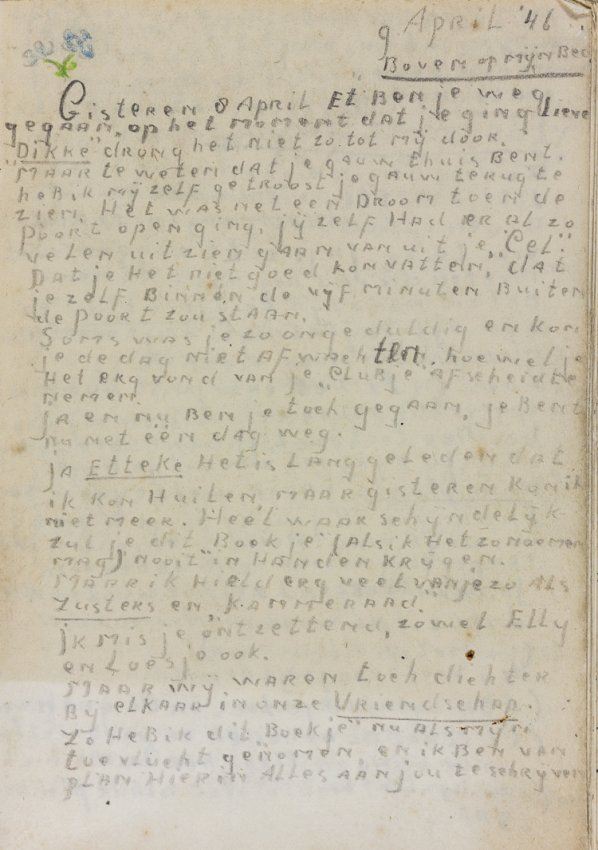 9 April '46
Boven op mijn Bed
Gisteren 8 April Et Ben je weg
gegaan, op het moment dat je ging lieve
"Dikke" drong het niet zo tot mij door.
Maar te weten dat je gauw thuis Bent,
heb ik mij zelf getroost je gauw terug te
zien. Het was net een Droom toen de
poort open ging, jij zelf Had er al zo
velen uit zien gaan van uit je "Cel".
Dat je Het niet goed kon vatten, dat
je zelf Binnen de vijf minuten Buiten
de poort zou staan.
Soms was je zo ongeduldig en kon
je de dag niet afwachten, hoewel je
Het erg vond van je "Clubje" afscheid te
nemen.
Ja en nu Ben je toch gegaan, je Bent
nu net één dag weg.
Ja Etteke Het is lang geleden dat
ik kon Huilen, maar gisteren kon ik
niet meer. Heel waarschijndelijk
zul je dit Boekje (als ik Het zo noemen
mag) nooit in Handen krijgen.
Maar ik Hield erg veel van je zo als
Zusters en "Kammeraad".
Ik mis je ontzettend, zowel Elly
en Loesje ook.
Maar wij waren toch dichter
Bij elkaar in onze Vriendschap.
Zo Heb ik dit Boekje nu als mijn
toevlucht genomen, en ik Ben van
plan Hierin Alles aan jou te schrijven